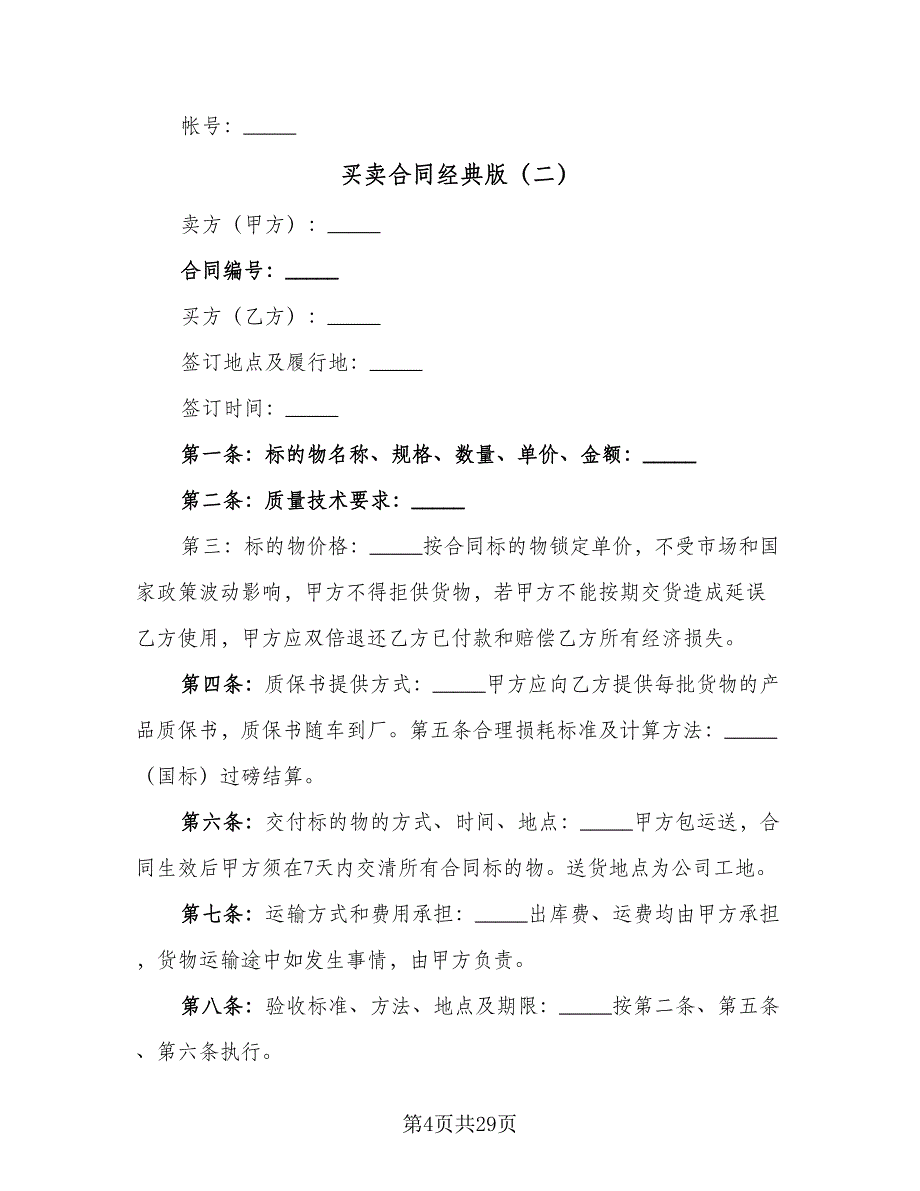 帐号：_____
买卖合同经典版（二）
卖方（甲方）：_____
合同编号：_____
买方（乙方）：_____
签订地点及履行地：_____
签订时间：_____
第一条：标的物名称、规格、数量、单价、金额：_____
第二条：质量技术要求：_____
第三：标的物价格：_____按合同标的物锁定单价，不受市场和国
家政策波动影响，甲方不得拒供货物，若甲方不能按期交货造成延误
乙方使用，甲方应双倍退还乙方已付款和赔偿乙方所有经济损失。
第四条：质保书提供方式：_____甲方应向乙方提供每批货物的产
品质保书，质保书随车到厂。第五条合理损耗标准及计算方法：_____
（国标）过磅结算。
第六条：交付标的物的方式、时间、地点：_____甲方包运送，合
同生效后甲方须在7天内交清所有合同标的物。送货地点为公司工地。
第七条：运输方式和费用承担：_____出库费、运费均由甲方承担
，货物运输途中如发生事情，由甲方负责。
第八条：验收标准、方法、地点及期限：_____按第二条、第五条
、第六条执行。
第4页共29页